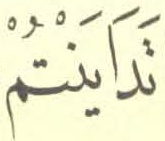 تَدَايَنْتُمْ